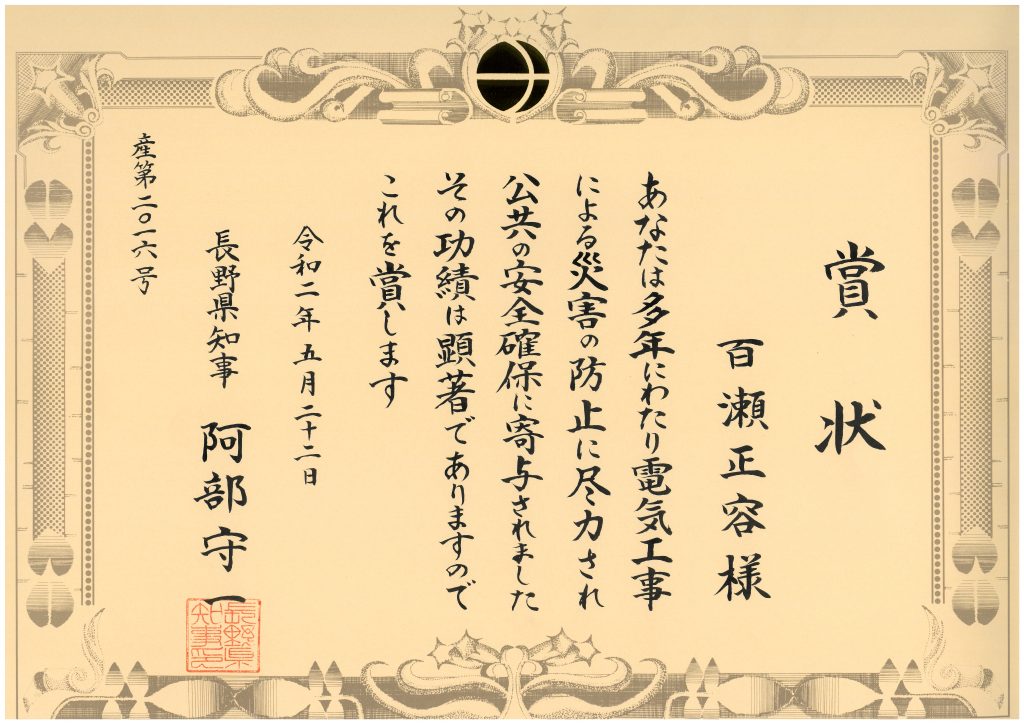 賞状
百瀬正容様
あなたは多年にわたり電気工事
による災害の防止に尽力され
公共の安全確保に寄与されました
その功績は顕著でありますので
これを賞します
令和二年五月二十二日
長野県知事 阿部守一
長野県知事印
産第二〇一六号